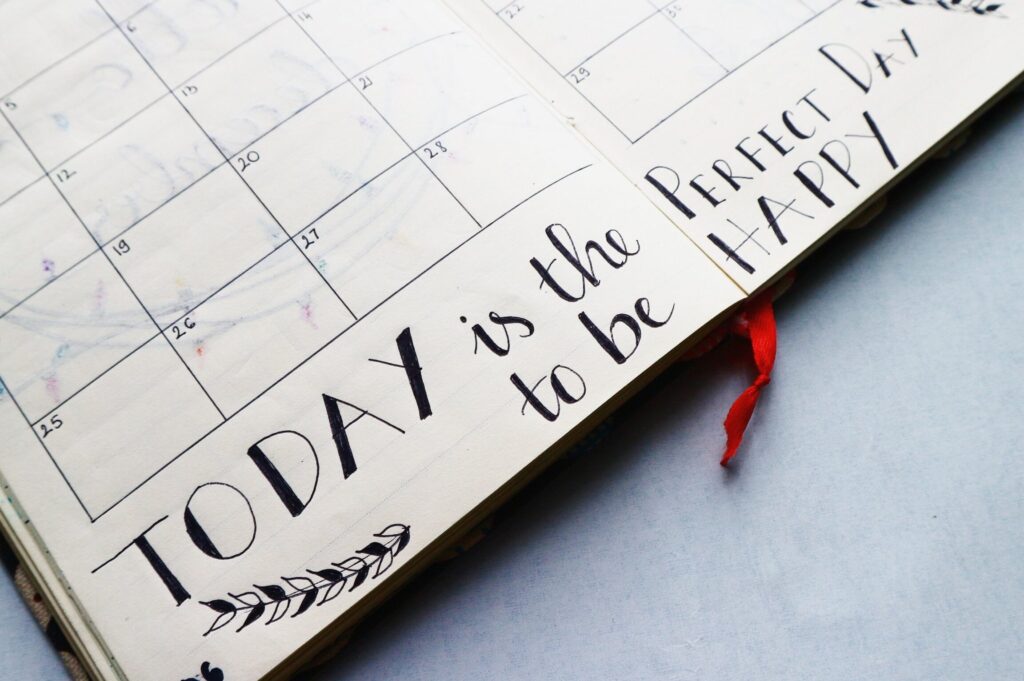 5 6
12 13 14
19 20 21
25 26 27 28
22
29 30
TODAY is the PERFECT DAY
to be HAPPY